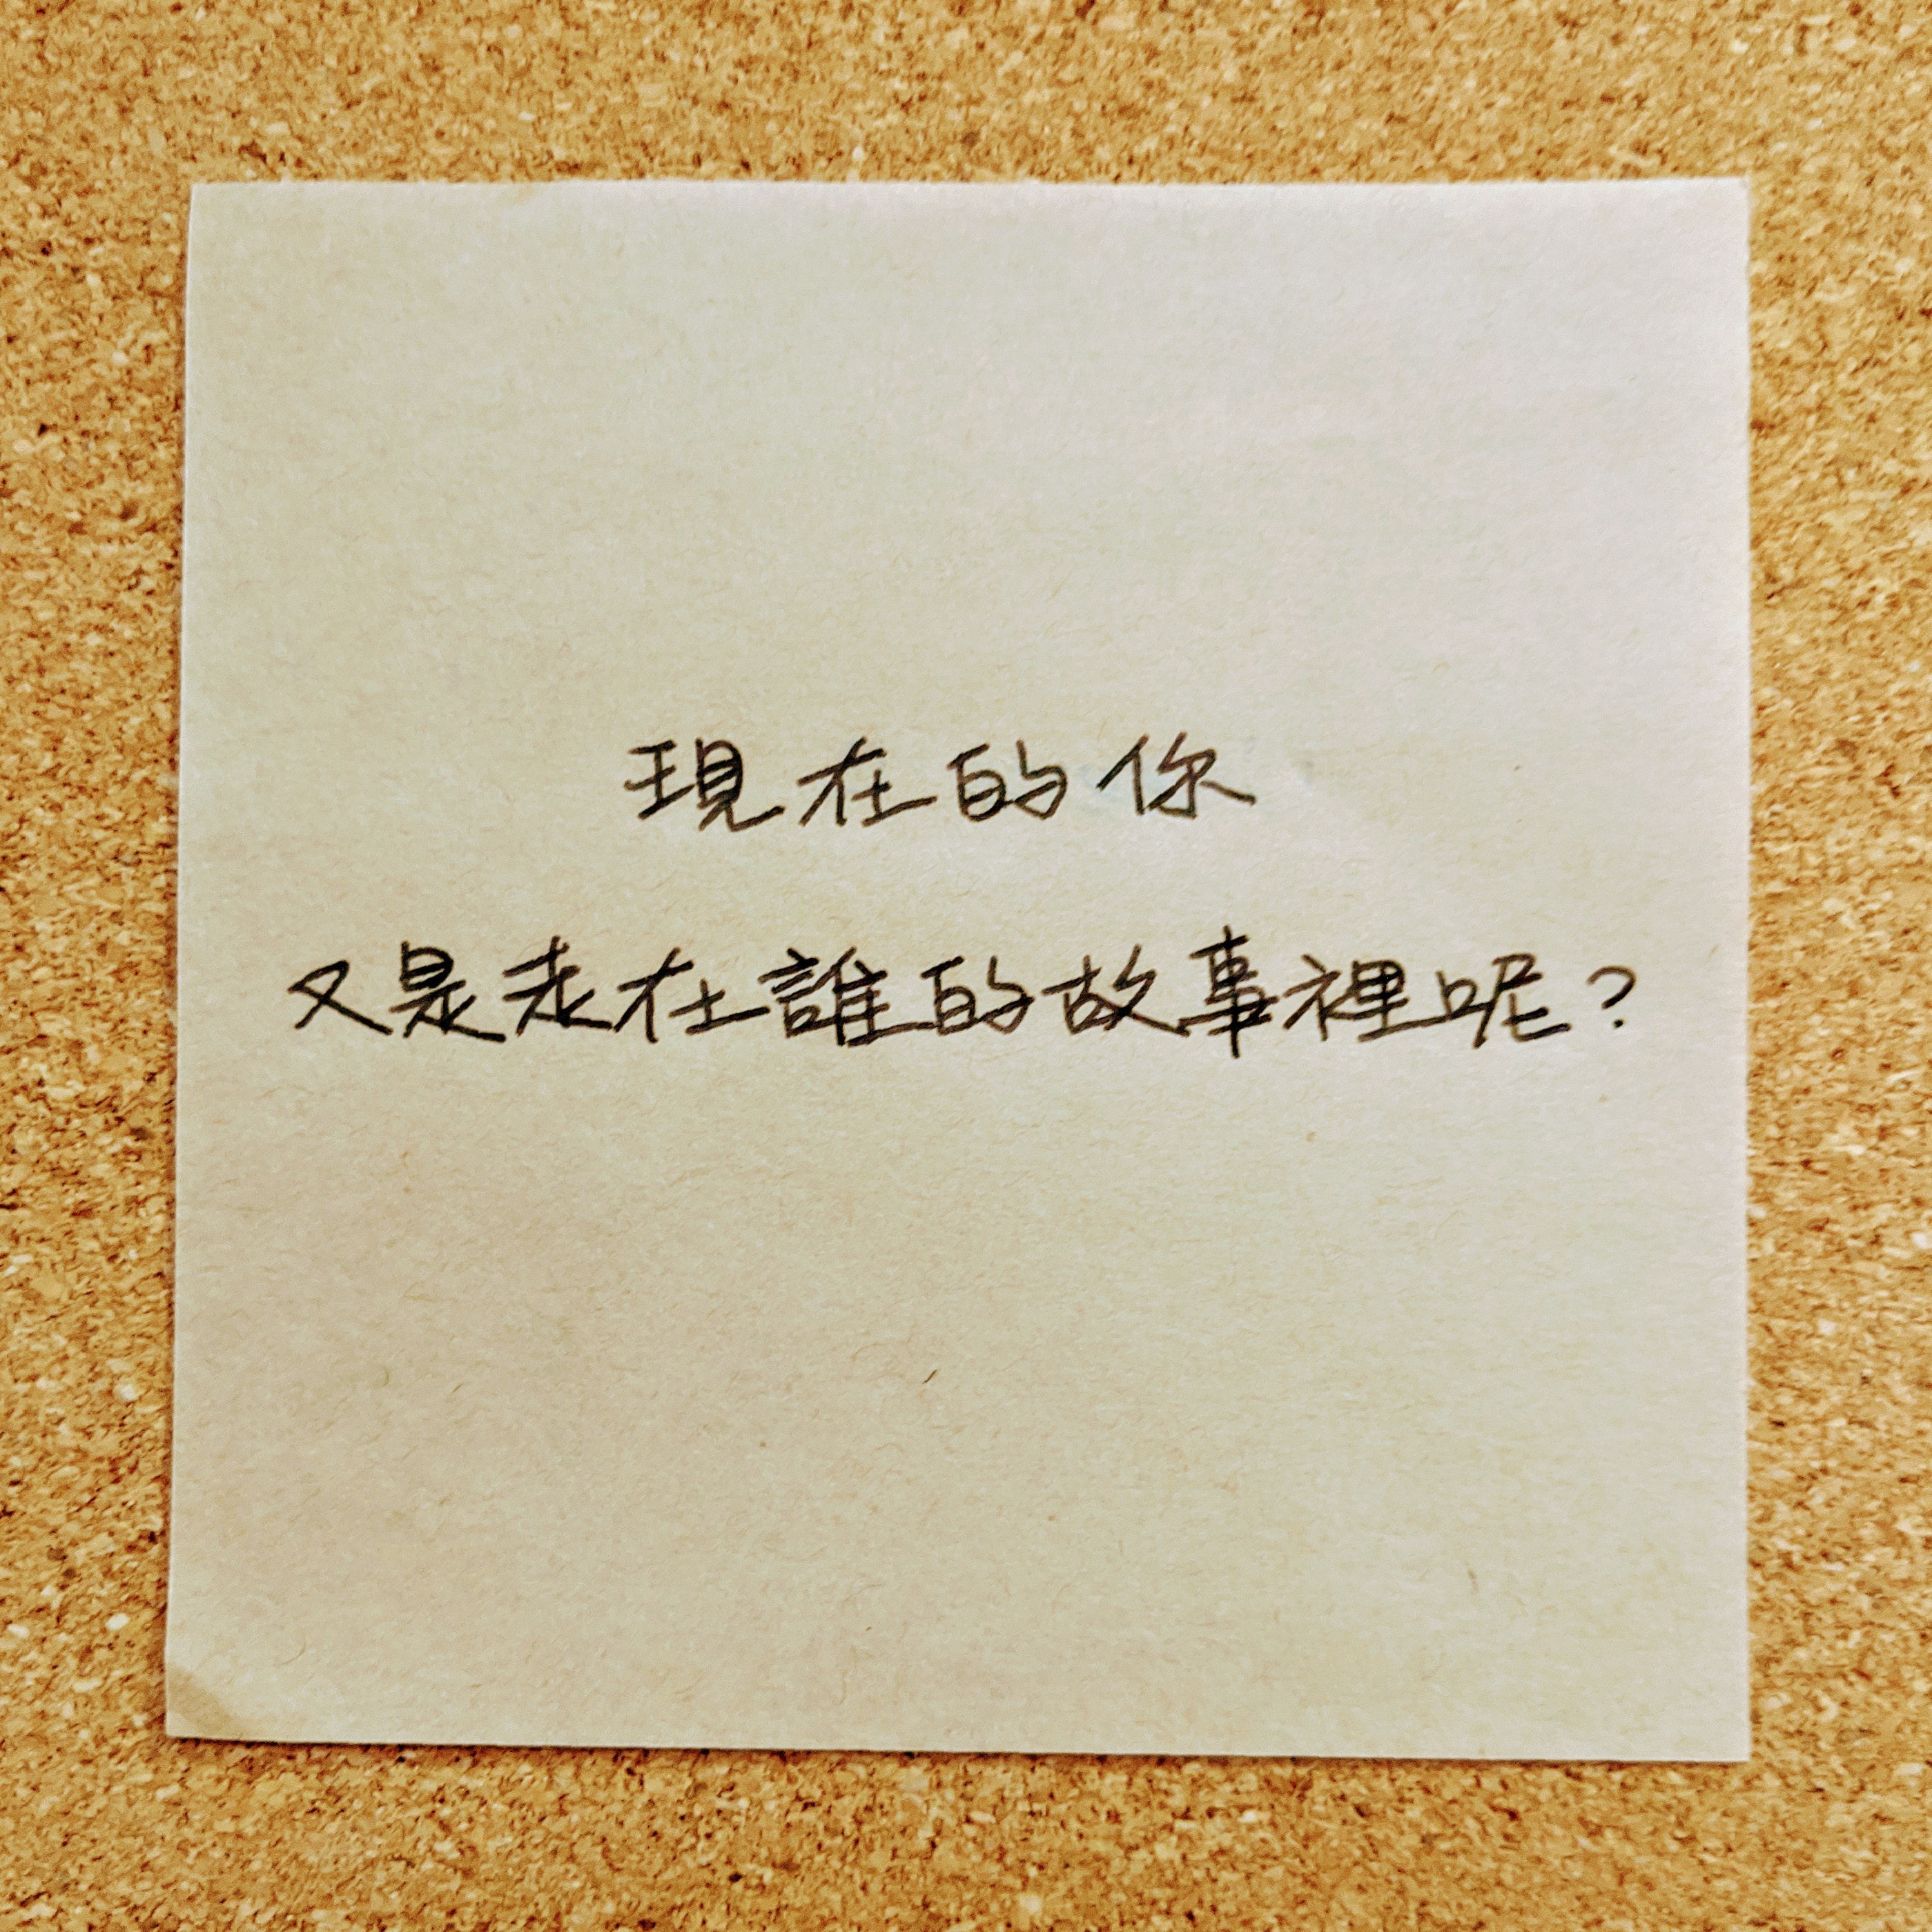 現在的你
又是走在誰的故事裡呢？